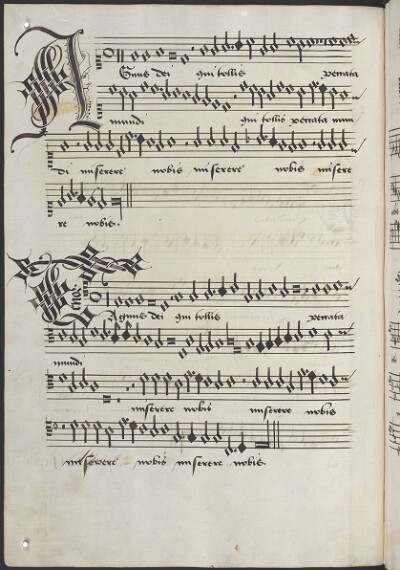 Agnus dei qui tollis peccata
mundi qui tollis peccata mun
di miserere nobis miserere nobis misere
re nobis.
Agnus dei qui tollis peccata
mundi
miserere nobis miserere nobis
miserere nobis miserere nobis.